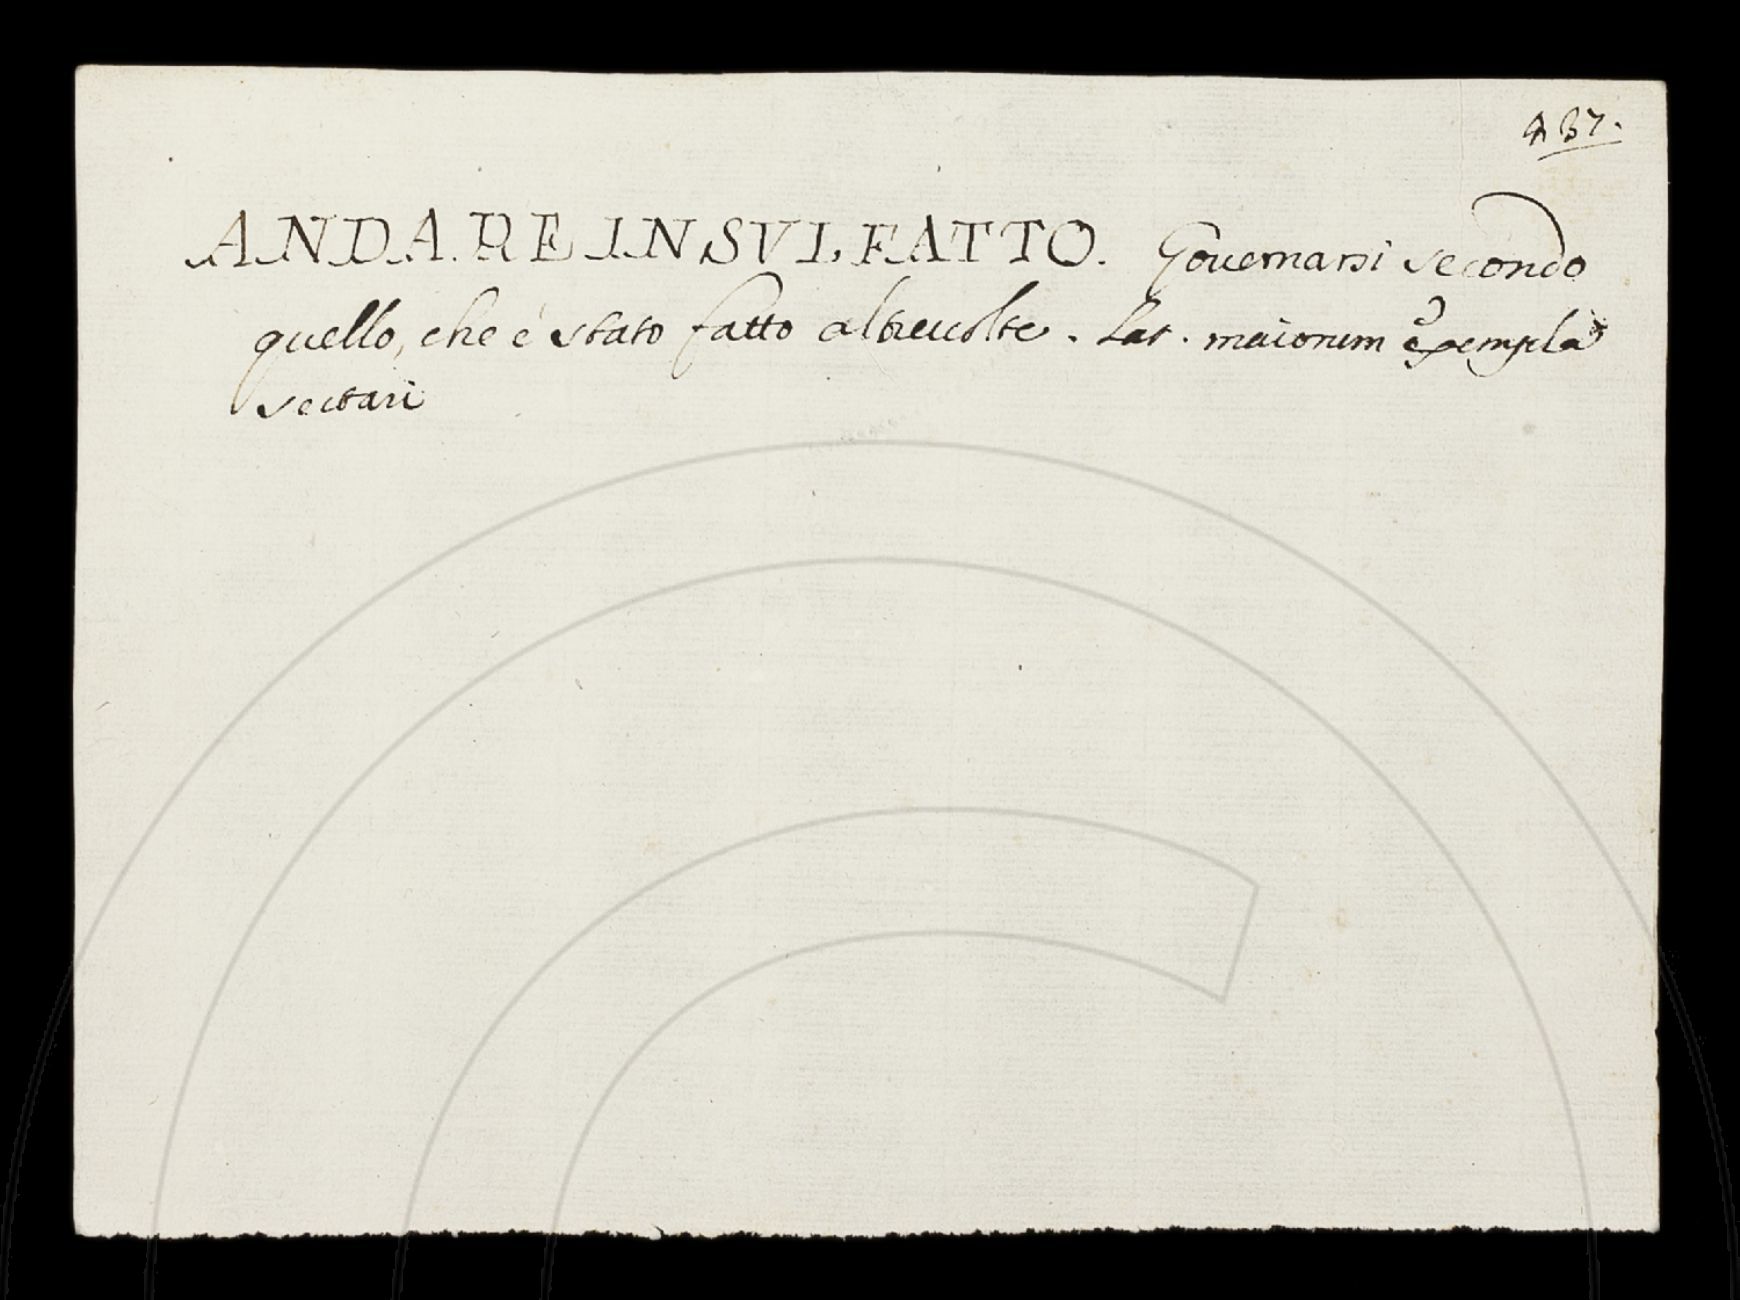 437.
ANDARE IN SVL FATTO. Gouernarsi secondo
quello, che è stato fatto altreuolte. Lat. maiorum exempla
sectari